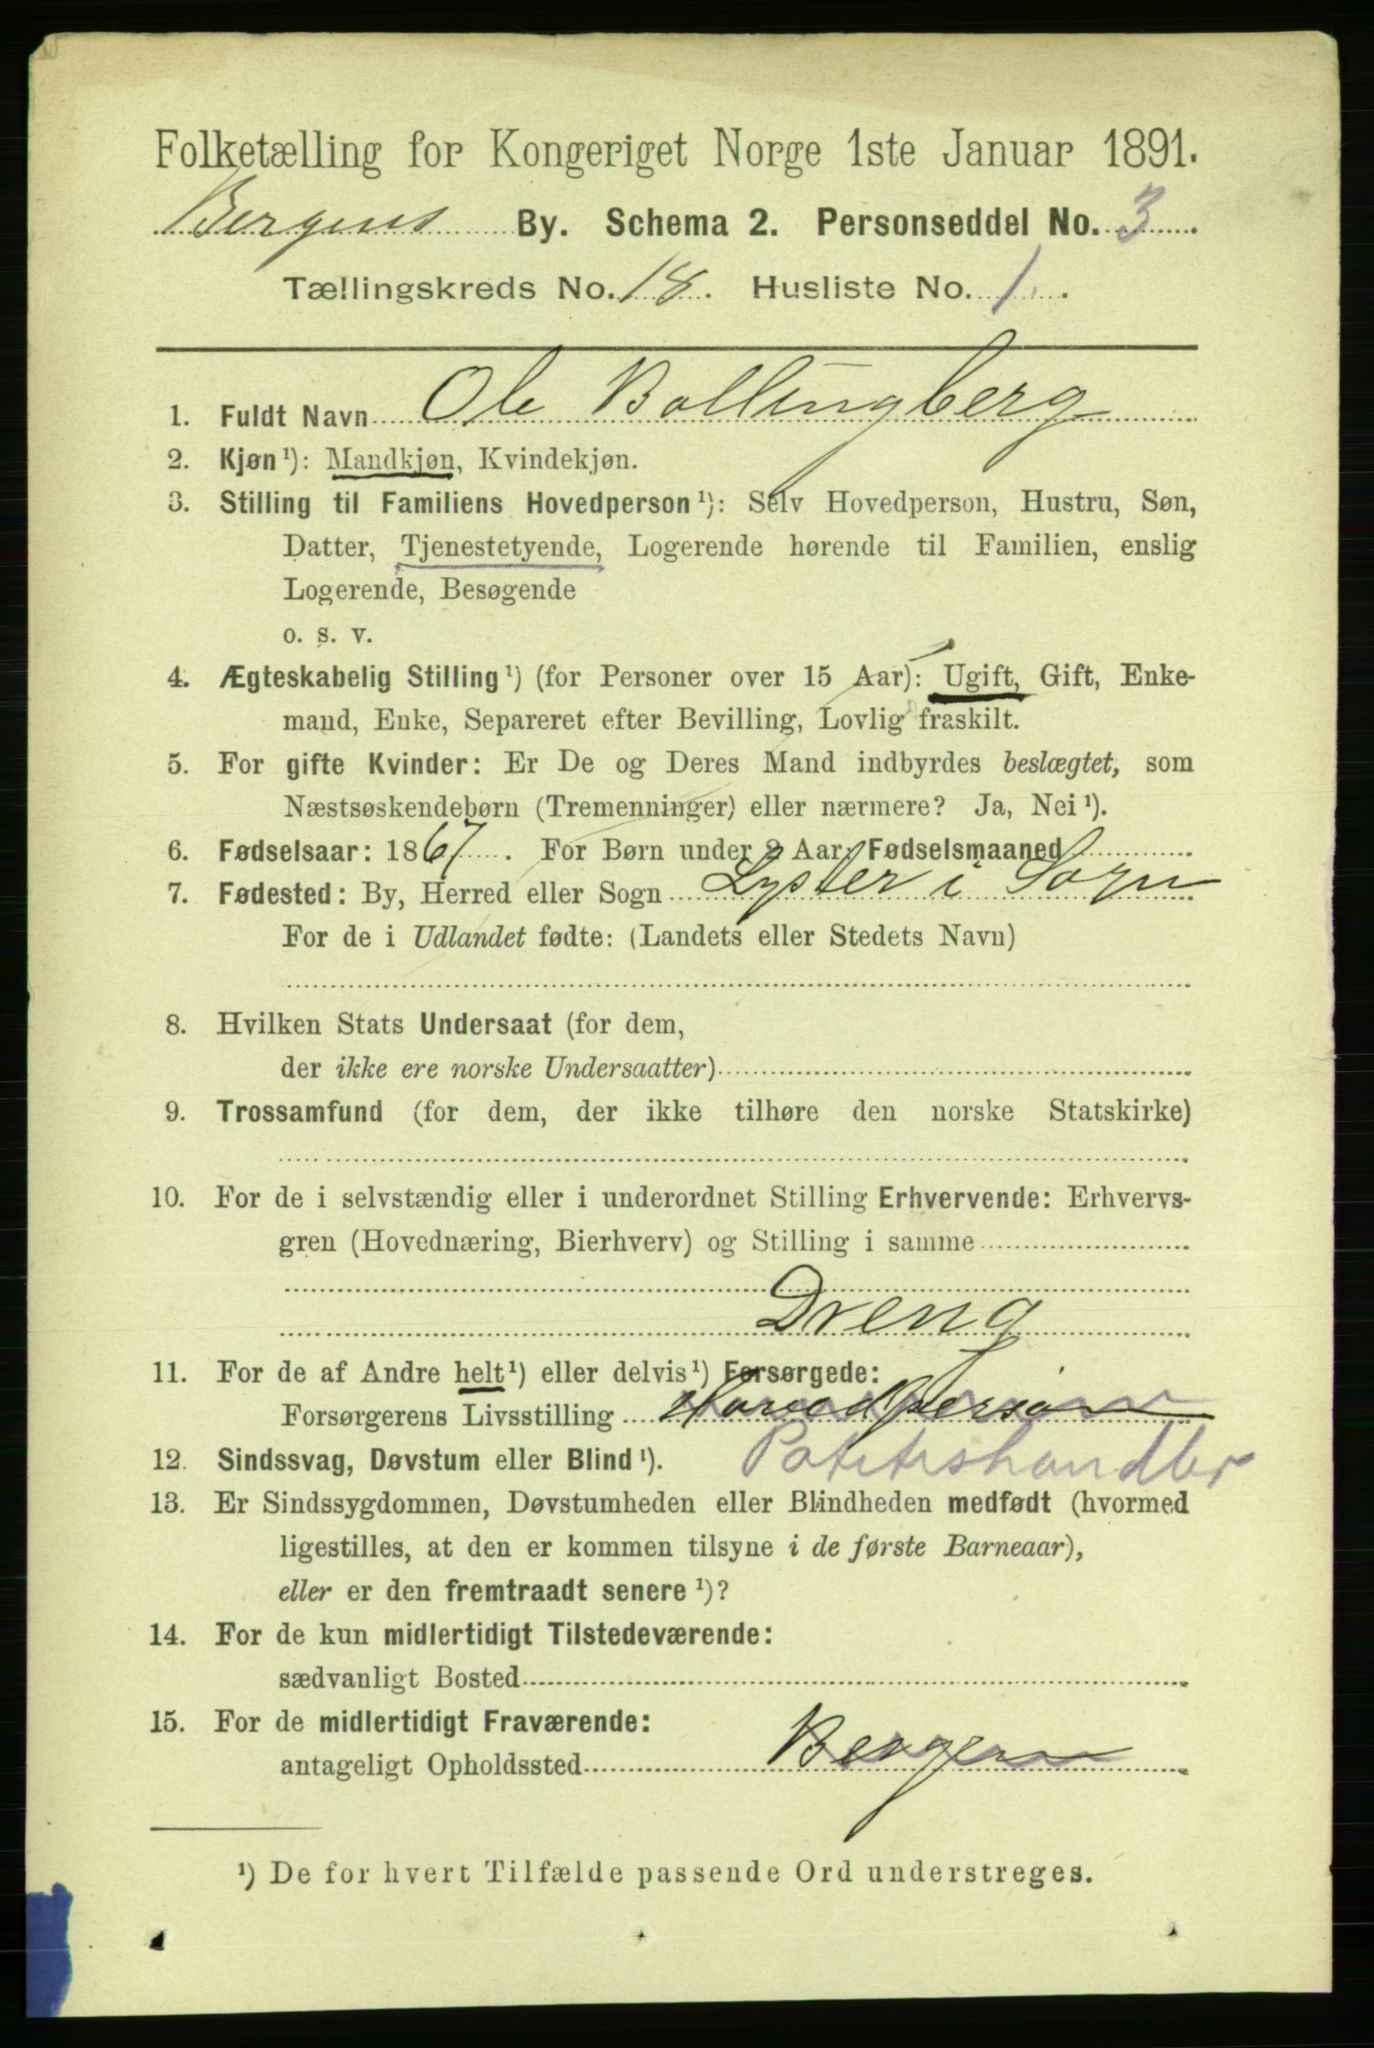 Folketælling for Kongeriget Norge 1ste Januar 1891.
Bergens By. Schema 2. Personseddel No. 3
Tællingskreds No. 18. Husliste No. 1.
1. Fuldt Navn Ole Bollingberg
2. Kjøn ¹): Mandkjøn, Kvindekjøn.
3. Stilling til Familiens Hovedperson ¹): Selv Hovedperson, Hustru, Søn,
Datter, Tjenestetyende, Logerende hørende til Familien, enslig
Logerende, Besøgende
o. s. v.
4. Ægteskabelig Stilling ¹) (for Personer over 15 Aar): Ugift, Gift, Enke-
mand, Enke, Separeret efter Bevilling, Lovlig fraskilt.
5. For gifte Kvinder: Er De og Deres Mand indbyrdes beslægtet, som
Næstsøskendebørn (Tremenninger) eller nærmere? Ja, Nei ¹).
6. Fødselsaar: 1867. For Børn under 2 Aar: Fødselsmaaned
7. Fødested: By, Herred eller Sogn Lyster i Sogn
For de i Udlandet fødte: (Landets eller Stedets Navn)
8. Hvilken Stats Undersaat (for dem,
der ikke ere norske Undersaatter)
9. Trossamfund (for dem, der ikke tilhøre den norske Statskirke)
10. For de i selvstændig eller i underordnet Stilling Erhvervende: Erhvervs-
gren (Hovednæring, Bierhverv) og Stilling i samme
Dreng
11. For de af Andre helt ¹) eller delvis ¹) Forsørgede:
Forsørgerens Livsstilling Hovedperson
12. Sindssvag, Døvstum eller Blind ¹). Potetishandler
13. Er Sindssygdommen, Døvstumheden eller Blindheden medfødt (hvormed
ligestilles, at den er kommen tilsyne i de første Barneaar),
eller er den fremtraadt senere ¹)?
14. For de kun midlertidigt Tilstedeværende:
sædvanligt Bosted
15. For de midlertidigt Fraværende:
antageligt Opholdssted Bergen
¹) De for hvert Tilfælde passende Ord understreges.